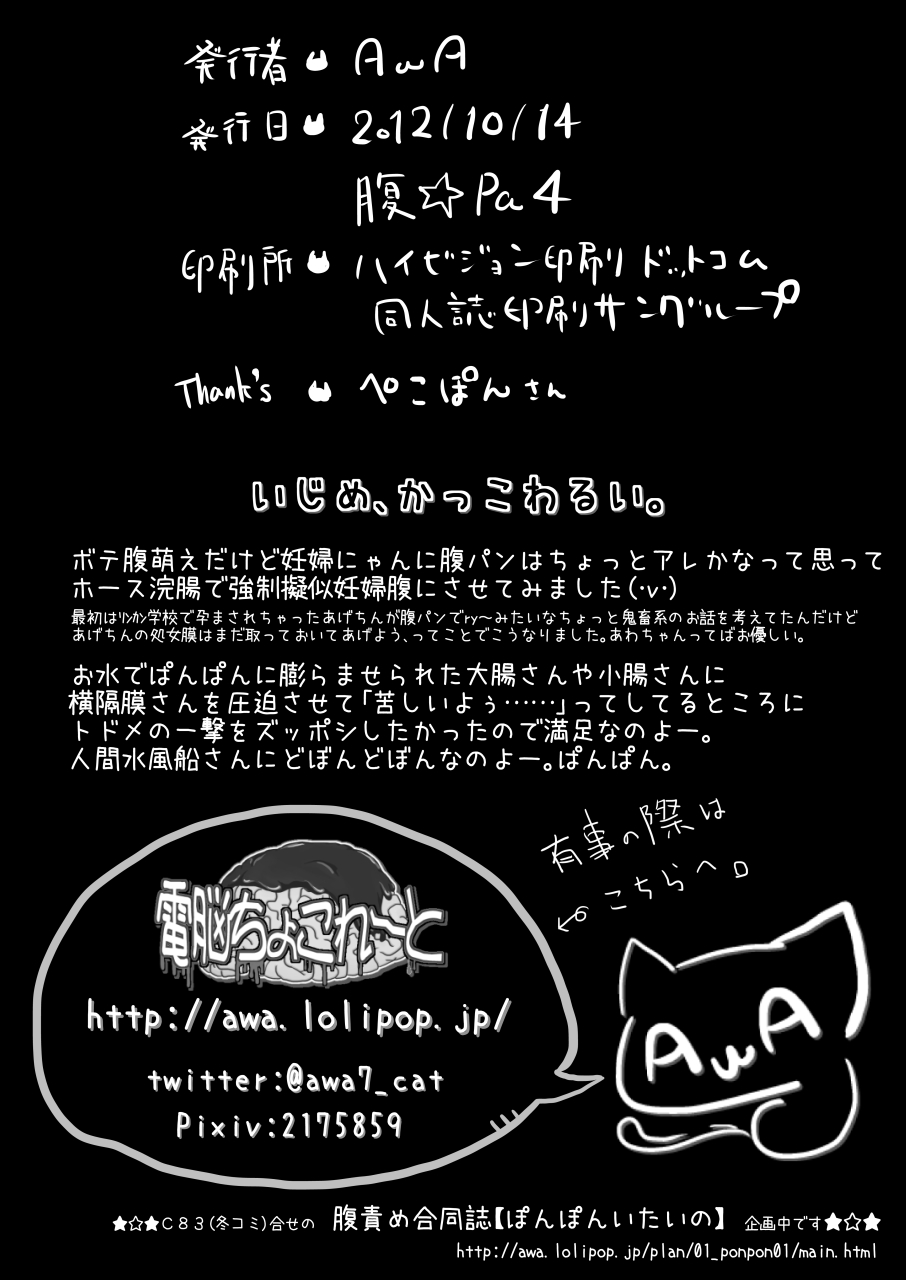 発行者 AωA
発行日 2012/10/14
腹☆Pa4
印刷所 ハイビジョン印刷ドットコム
同人誌印刷サングループ
Thank's ぺこぽんさん
いじめ、かっこわるい。
ボテ腹萌えだけど妊婦にゃんに腹パンはちょっとアレかなって思って
ホース浣腸で強制擬似妊婦腹にさせてみました(・v・)
最初はﾘﾝｶﾝ学校で孕まされちゃったあげちんが腹パンでry～みたいなちょっと鬼畜系のお話を考えてたんだけど
あげちんの処女膜はまだ取っておいてあげよう、ってことでこうなりました。あわちゃんってばお優しい。
お水でぱんぱんに膨らませられた大腸さんや小腸さんに
横隔膜さんを圧迫させて「苦しいよぅ……」ってしてるところに
トドメの一撃をズッポシしたかったので満足なのよー。
人間水風船さんにどぼんどぼんなのよー。ぱんぱん。
有事の際は
こちらへ。
電脳ちょこれ～と
http://awa.lolipop.jp/
twitter:@awa7_cat
Pixiv:2175859
AωA
★☆★C83(冬コミ)合せの 腹責め合同誌【ぽんぽんいたいの】 企画中です★☆★
http://awa.lolipop.jp/plan/01_ponpon01/main.html